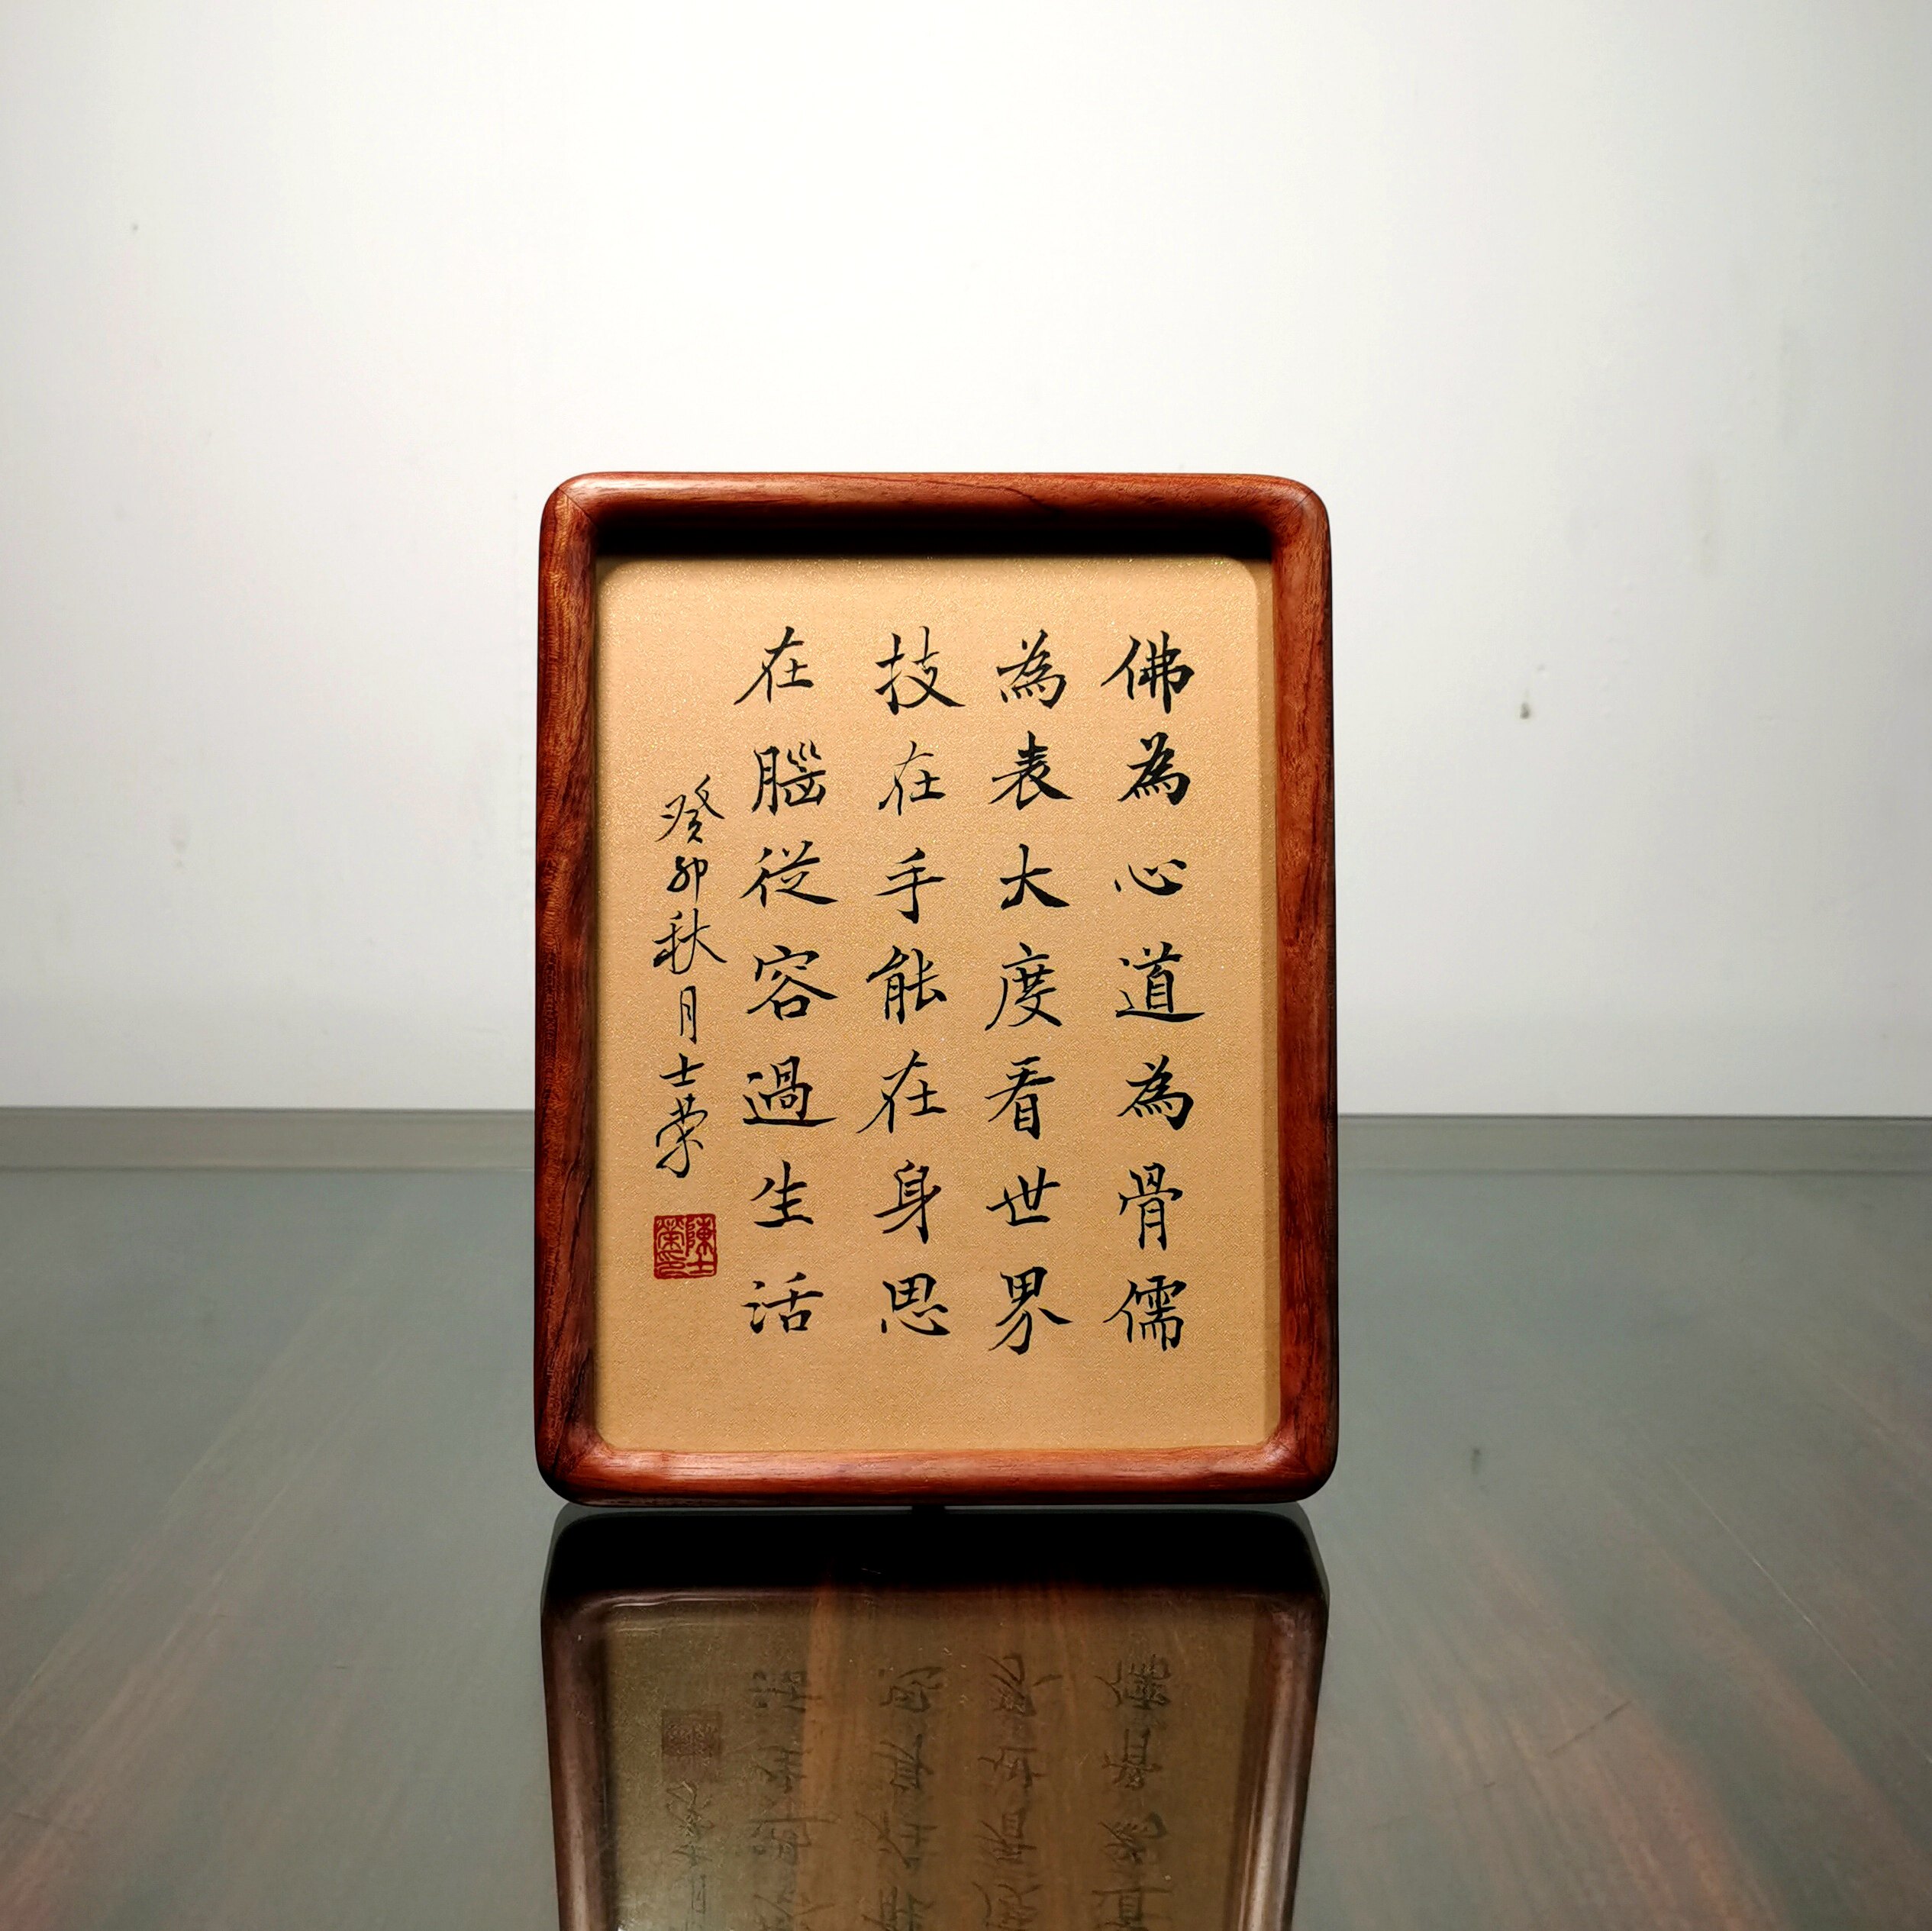 佛為心道為骨儒
為表大度看世界
技在手能在身思
在腦從容過生活
癸卯秋月士榮
陳士榮印